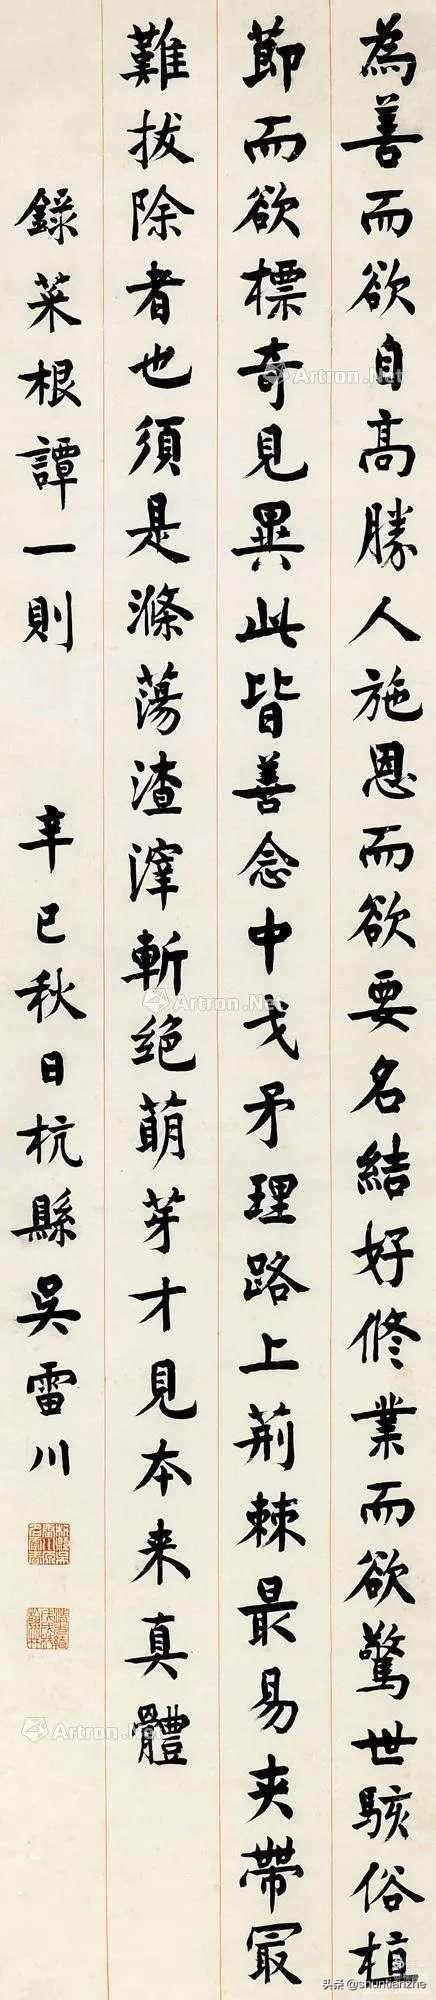 為善而欲自高勝人施恩而欲要名結好修業而欲驚世駭俗植
節而欲標奇見異此皆善念中戈矛理路上荊棘最易夾帶最
難拔除者也須是滌蕩渣滓斬絕萌芽才見本来真體
錄菜根譚一則 辛巳秋日杭縣吳雷川
Artron.Net
Artron.Net
Artron.Net
Artron.Net
头条 @shuntianzhe